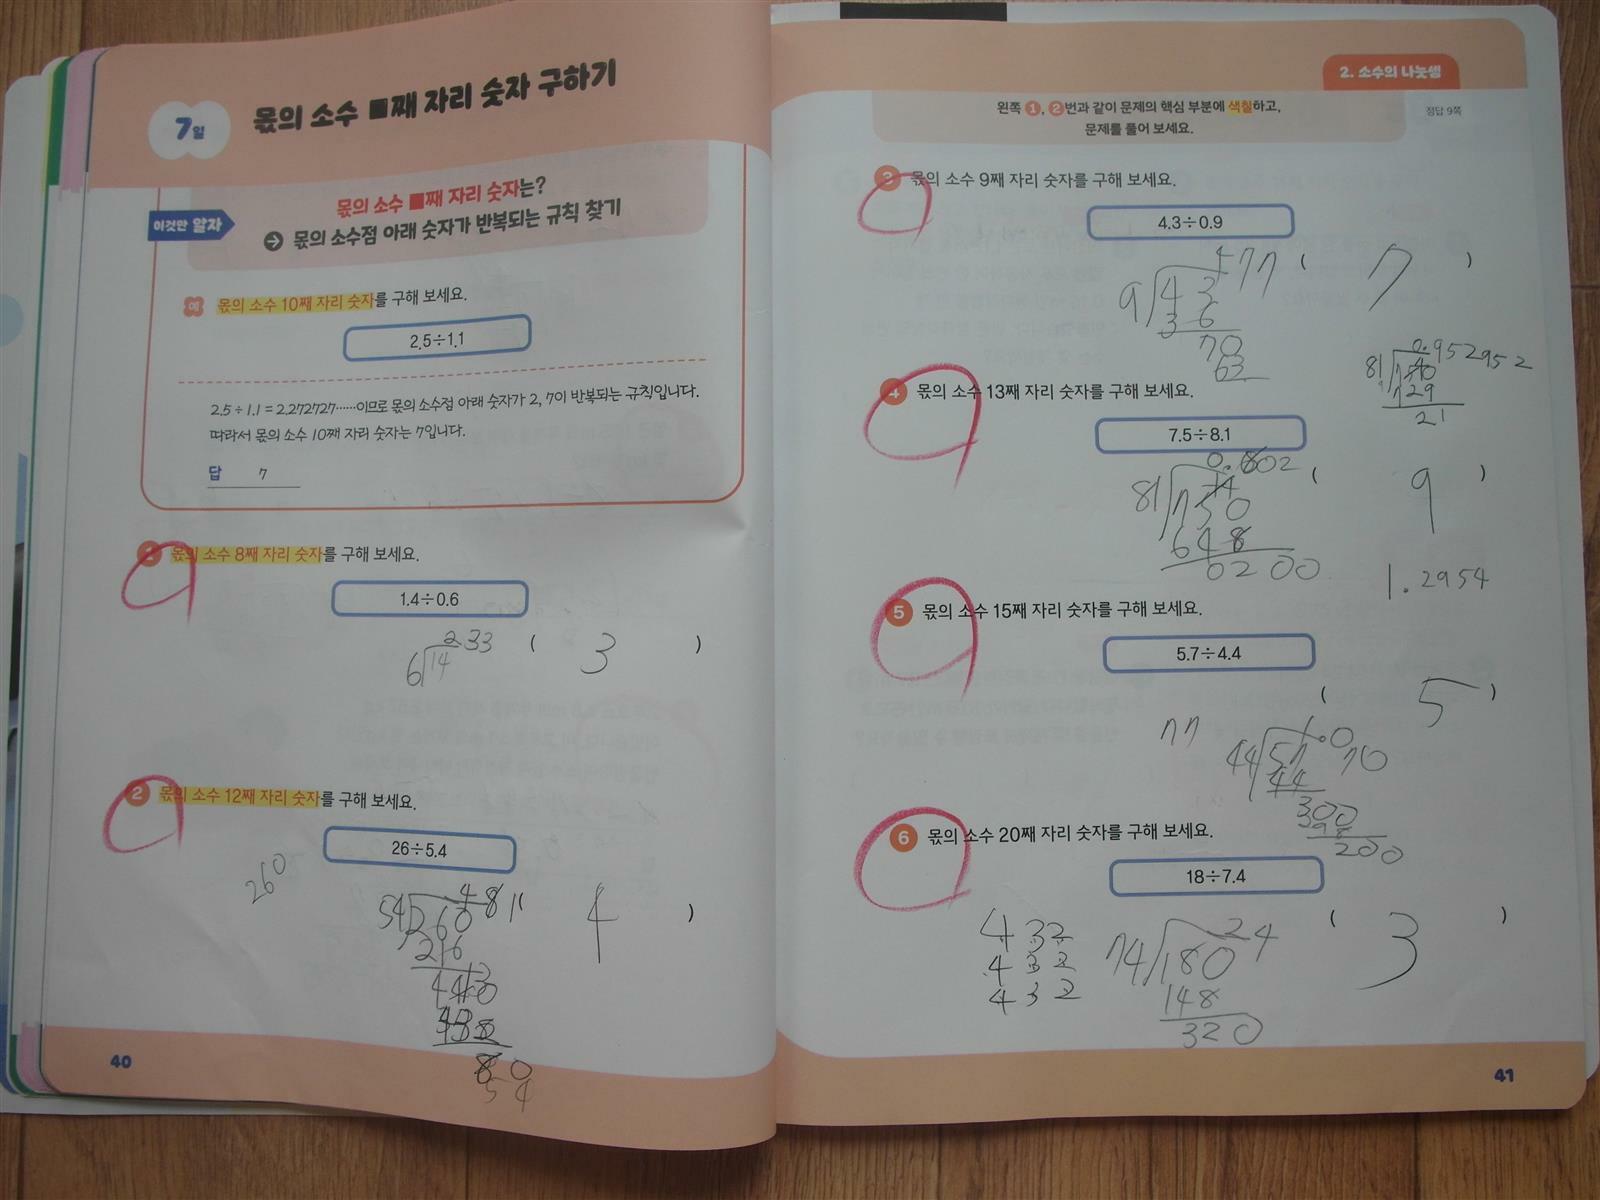 7일
몫의 소수 ■째 자리 숫자 구하기
이것만 알자
몫의 소수 ■째 자리 숫자는?
몫의 소수점 아래 숫자가 반복되는 규칙 찾기
예 몫의 소수 10째 자리 숫자를 구해 보세요.
2.5÷1.1
2.5÷1.1=2.272727……이므로 몫의 소수점 아래 숫자가 2, 7이 반복되는 규칙입니다.
따라서 몫의 소수 10째 자리 숫자는 7입니다.
답 7
1 몫의 소수 8째 자리 숫자를 구해 보세요.
1.4÷0.6
2.33
6 14
( 3 )
2 몫의 소수 12째 자리 숫자를 구해 보세요.
26÷5.4
260
54 260
216
4 )
54
40
2. 소수의 나눗셈
왼쪽 1, 2번과 같이 문제의 핵심 부분에 색칠하고,
문제를 풀어 보세요.
정답 9쪽
3 몫의 소수 9째 자리 숫자를 구해 보세요.
4.3÷0.9
477
9 43
36
70
63
( 7 )
4 몫의 소수 13째 자리 숫자를 구해 보세요.
0.952952
81
129
21
7.5÷8.1
81 750
648
0200
( 9 )
1.2954
5 몫의 소수 15째 자리 숫자를 구해 보세요.
5.7÷4.4
( 5 )
77
44 57
44
300
200
6 몫의 소수 20째 자리 숫자를 구해 보세요.
18÷7.4
432
432
432
24
74 180
148
320
( 3 )
41